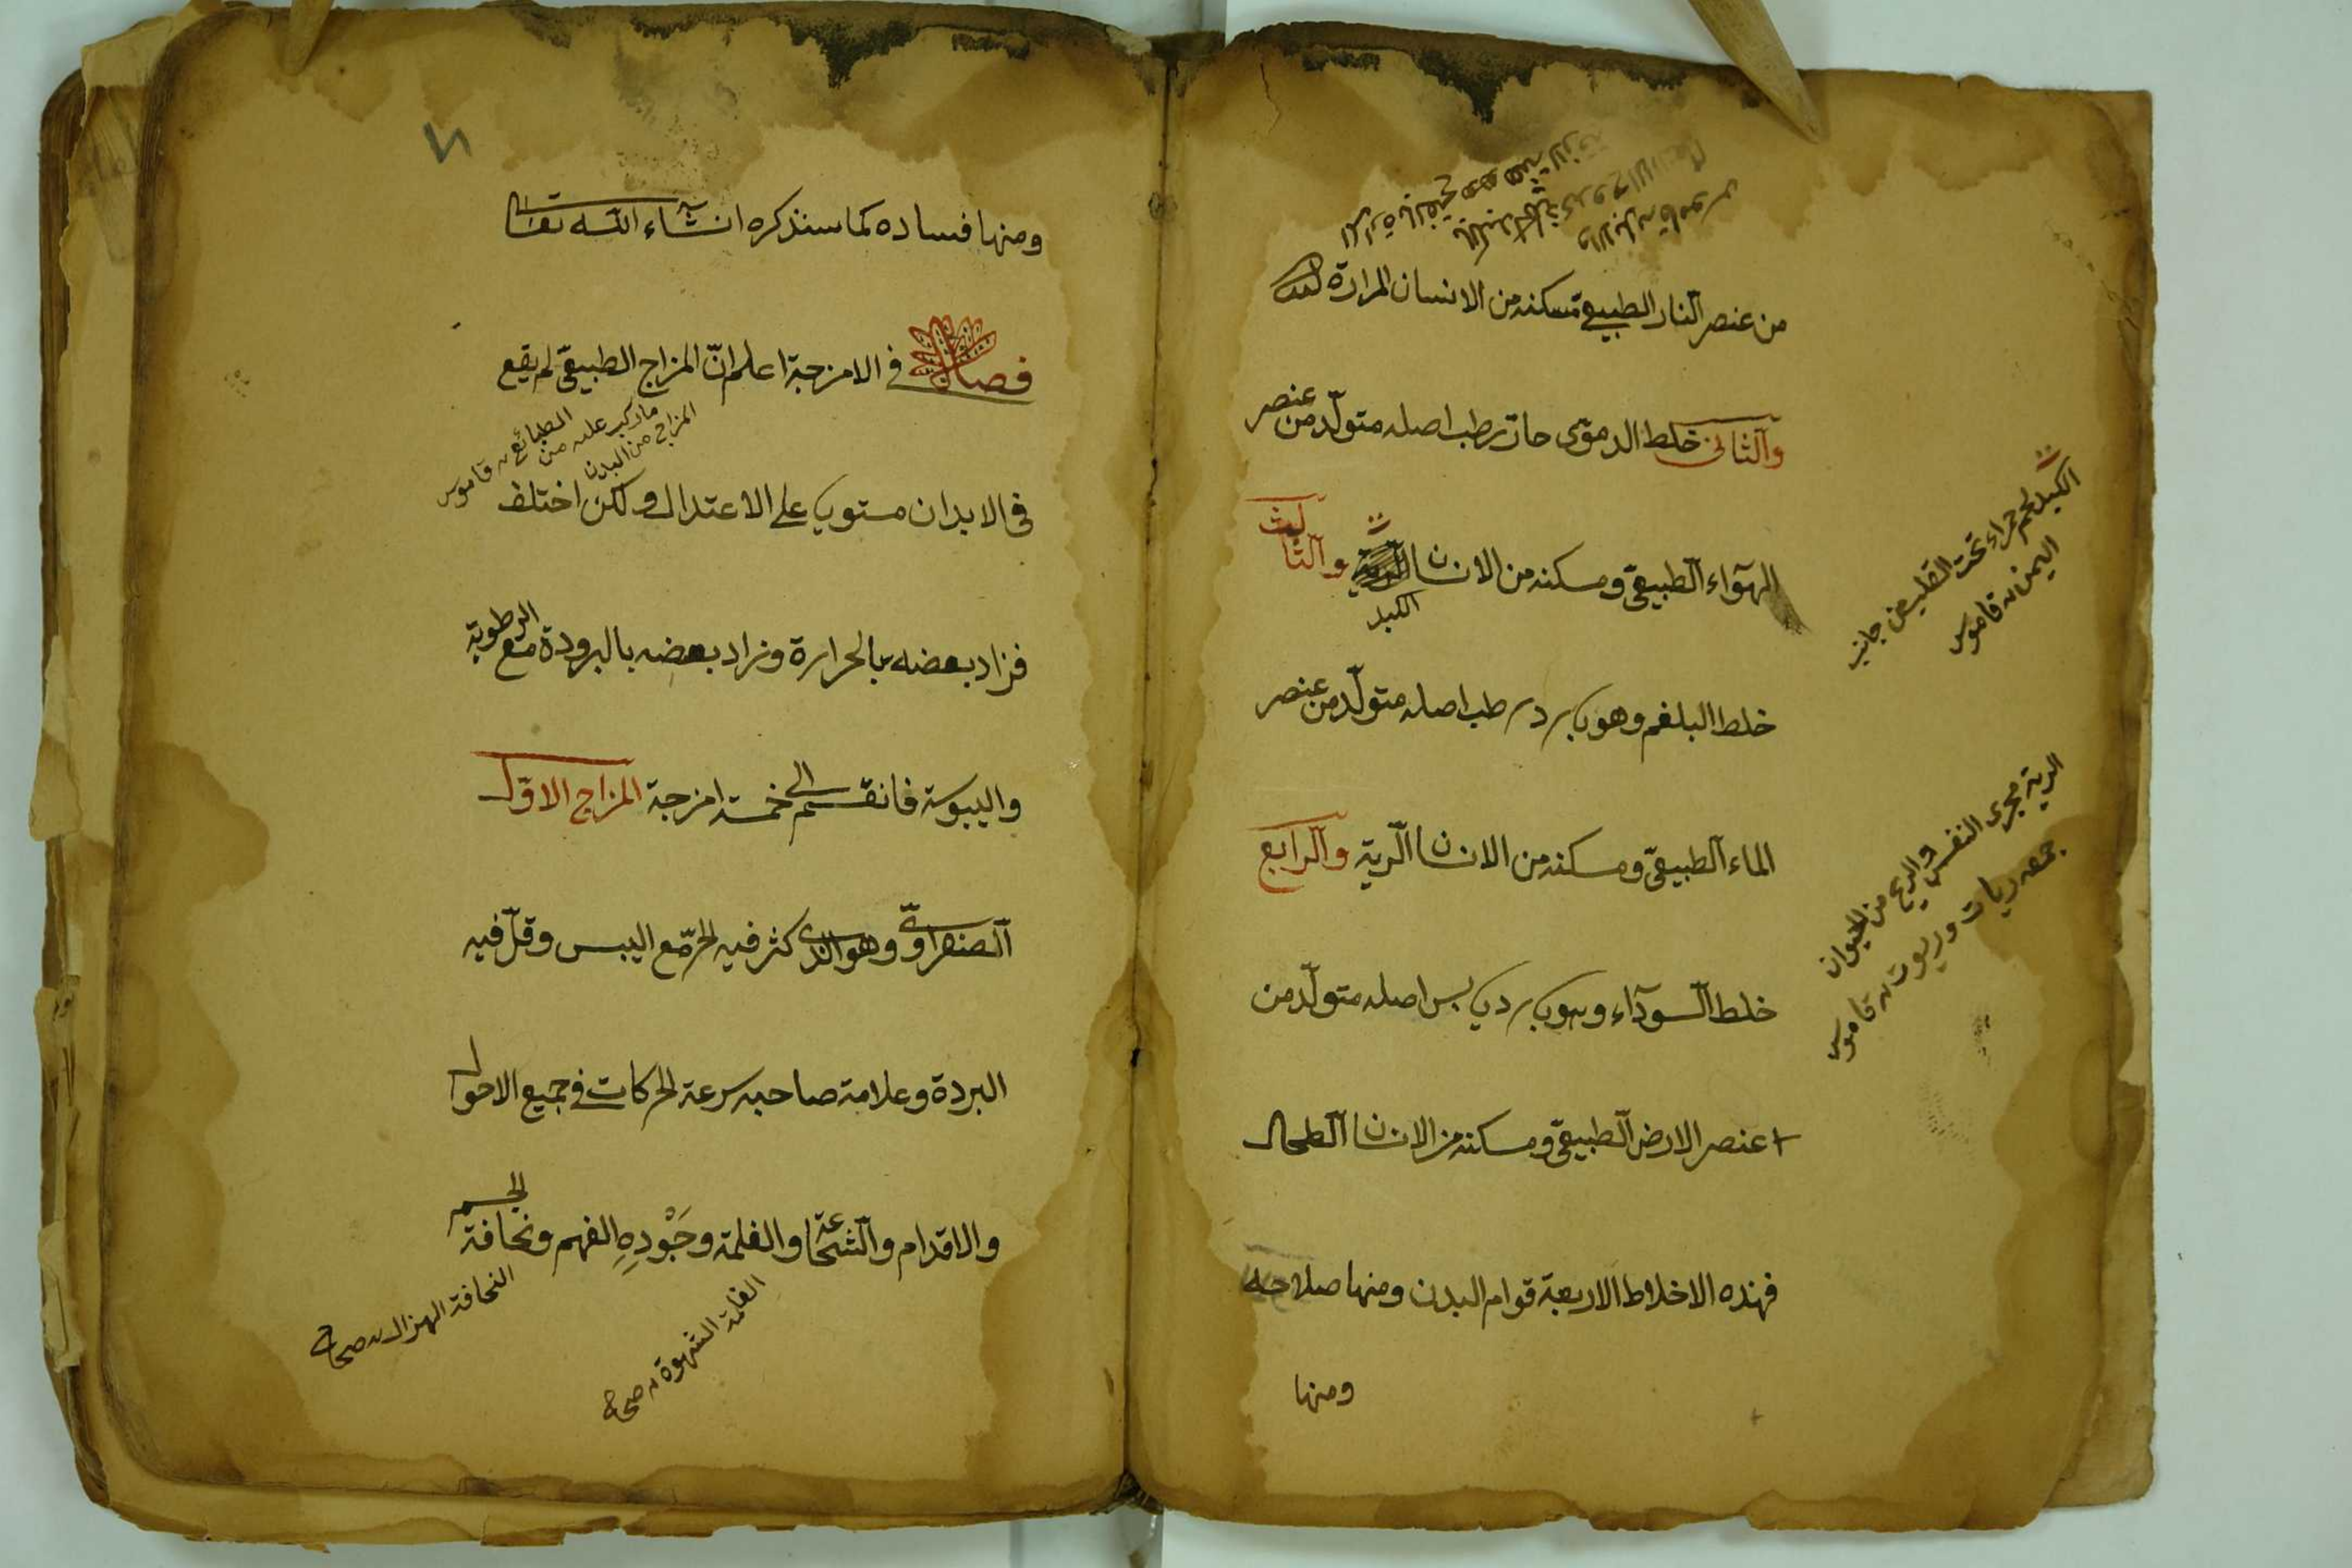 من عنصر النار الطبيعى مسكنه من الانسان المرارة
والثانى خلط الدموى حار رطب اصله متولد من عنصر
الهوآء الطبيعى ومسكنه من الانسان الكبد والثالث
خلط البلغم وهو بارد رطب اصله متولد من عنصر
الماء الطبيعى ومسكنه من الانسان الرية والرابع
خلط السودآء وهو بارد يابس اصله متولد من
عنصر الارض الطبيعى ومسكنه من الانسان الطحال
فهذه الاخلاط الاربعة قوام البدن ومنها صلاحه
ومنها
الكبد لحم حمراء تحت القلب من جانب
اليمن قاموس
الرية مجرى النفس والريح من الحيوان
جمعه ريات وريوت قاموس
ومنها فساده كما سنذكره انشآء الله تعالى
فصل فى الامزجة اعلم انّ المزاج الطبيعىّ لم يقع
المزاج من البدن
ماركب عليه من
الطبائع قاموس
فى الابدان مستوي على الاعتدال ولكن اختلف
فزاد بعضه بالحرارة وزاد بعضه بالبرودة مع الرطوبة
واليبوسة فانقسم الى خمسة امزجة المزاج الاوّل
الصفراوىّ وهو الذى كثر فيه الحر مع اليبس وقلّ فيه
البردة وعلامة صاحبه سرعة الحركات فى جميع الاحوال
والاقدام والشجاعة والغلمة وجَوْدِهِ الفهم ونحافة الجسم
النحافة الهزال صحاح
الغلمة الشهوة صحاح